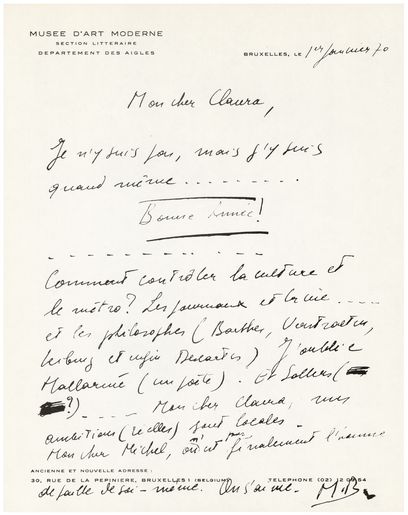 MUSEE D'ART MODERNE
SECTION LITTERAIRE
DEPARTEMENT DES AIGLES
BRUXELLES, LE 1er Janvier 70
Mon cher Claura,
Je n'y suis pas, mais j'y suis
quand même .........
Bonne Année!
Comment contrôler la culture et
le métro? Les journaux et la vie ....
et les philosophes (Barthes,
et enfin Descartes) J'oublie
Mallarmé (un poète). Et Sollers (
?) ---- Mon cher Claura, nos
ambitions (réelles) sont locales -
Mon cher Michel, finalement l'homme
ANCIENNE ET NOUVELLE ADRESSE :
30, RUE DE LA PEPINIERE, BRUXELLES 1 (BELGIUM) TELEPHONE (02) 12.09.54
de soi-même. On s'aime. M.B.